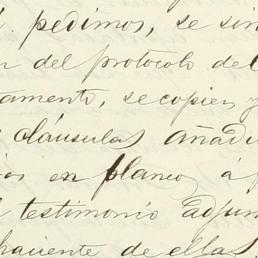 pedimos, se sin
del protocolo del
tamento, se copien y
cláusulas añadi
en blanco, á
testimonio adjun
haciente de ellas.